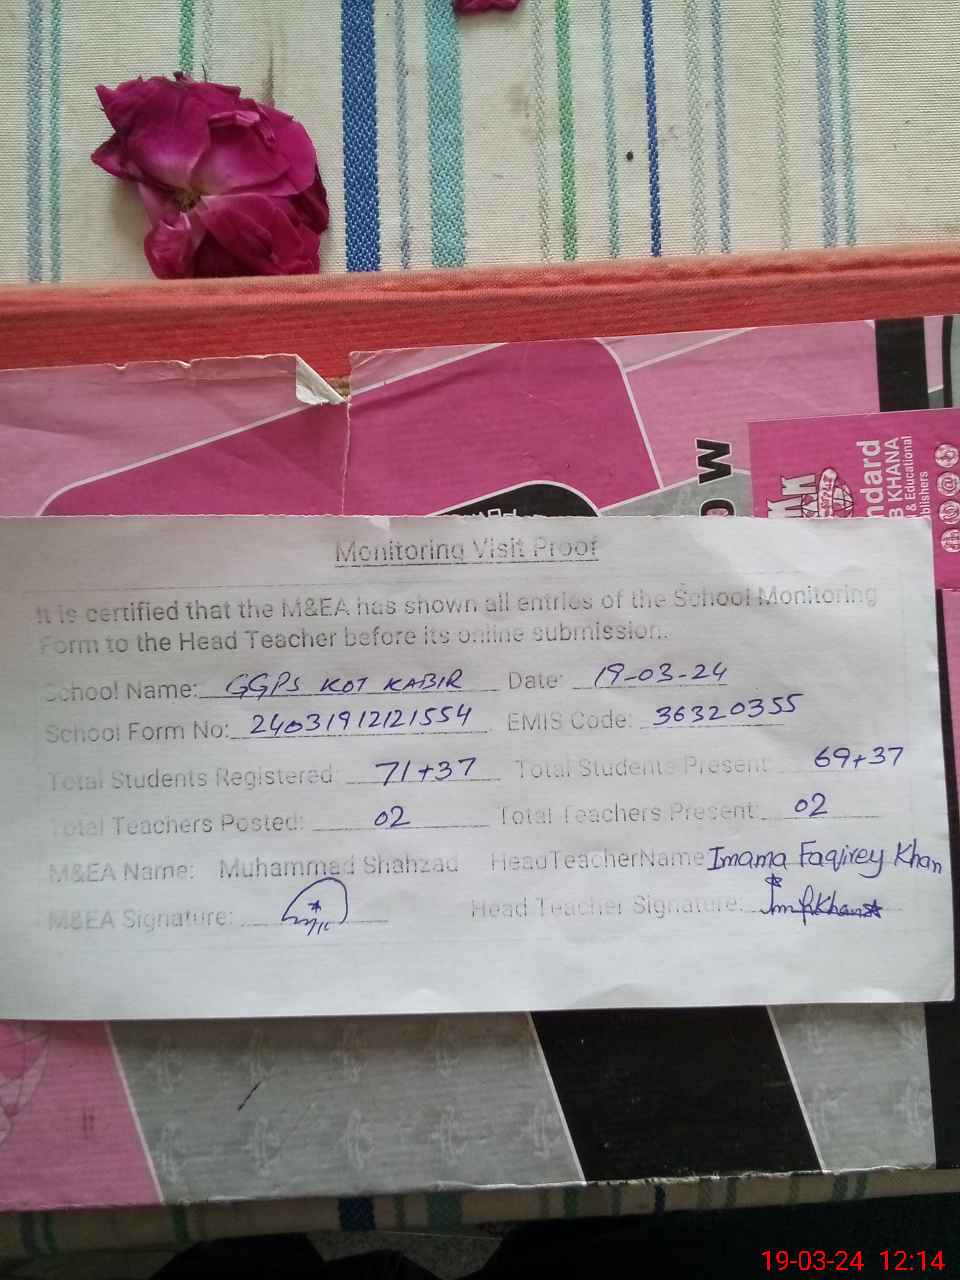 OW
ndard
B KHANA
& Educational
blishers
Monitoring Visit Proof
It is certified that the M&EA has shown all entries of the School Monitoring
Form to the Head Teacher before its online submission.
School Name: GGPS KOT KABIR Date: 19-03-24
School Form No: 24031912121554 EMIS Code: 36320355
Total Students Registered: 71+37 Total Students Present: 69+37
Total Teachers Posted: 02 Total Teachers Present: 02
M&EA Name: Muhammad Shahzad Head Teacher Name Imama Faqirey Khan
M&EA Signature: Head Teacher Signature:
19-03-24 12:14